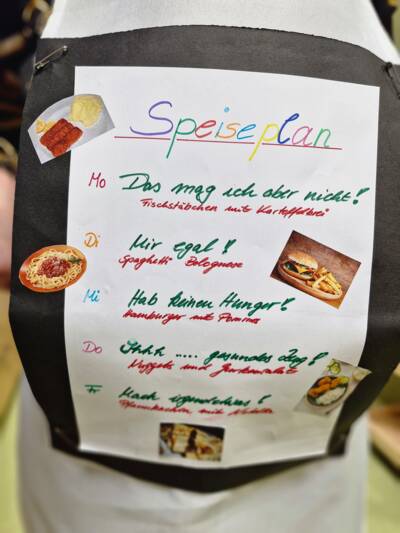 Speiseplan
Mo Das mag ich aber nicht!
Fischstäbchen mit Kartoffelbrei
Di Mir egal!
Spaghetti Bolognese
Mi Hab keinen Hunger!
Hamburger mit Pommes
Do Ihhh .... gesundes Zeug!
Nuggets und Gurkensalat
Fr Mach irgendwas!
Pfannkuchen mit Nutella